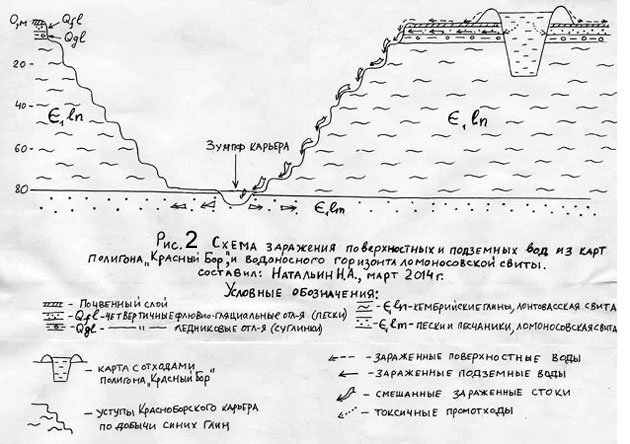 0,м
Qfl
Qgl
20-
40-
60-
80
Є₁ln
Є₁ln
Зумпф карьера
Є₁lm
Рис. 2 Схема заражения поверхностных и подземных вод из карт
полигона „Красный Бор", и водоносного горизонта ломоносовской свиты.
составил: Натальин Н.А., март 2014 г.
Условные обозначения:
- Почвенный слой
- Qfl - четвертичные флювио-гляциальные отл-я (пески)
- Qgl - —— " —— ледниковые отл-я (суглинки)
- Є₁ln - кембрийские глины, лонтовасская свита
- Є₁lm - пески и песчаники, ломоносовская свита
- карта с отходами
полигона „Красный Бор"
- уступы Красноборского карьера
по добычи синих глин
- зараженные поверхностные воды
- зараженные подземные воды
- смешанные зараженные стоки
- токсичные промотходы